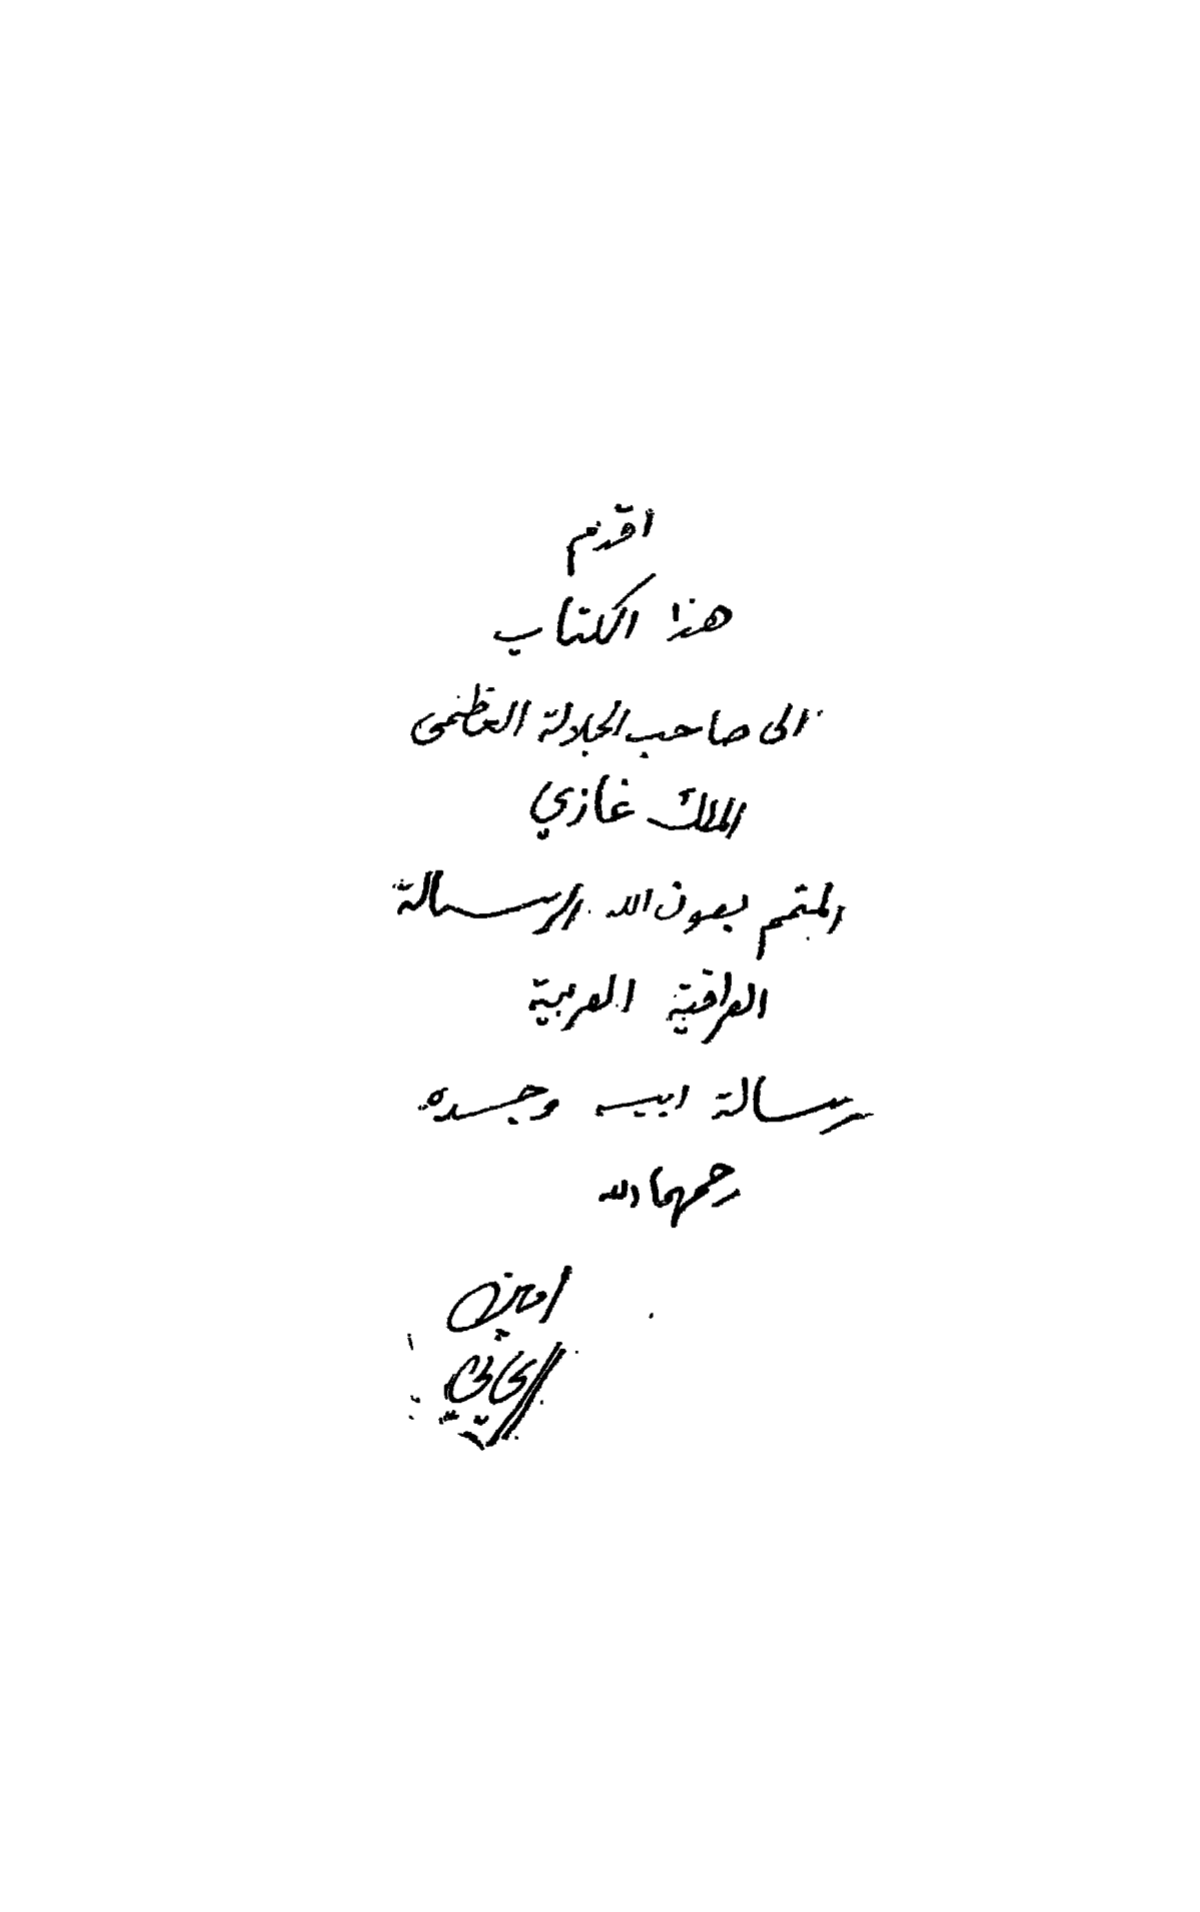 اقدم
هذا الكتاب
الى صاحب الجلالة العظمى
الملك غازي
المتمم بعون الله الرسالة
العراقية العربية
رسالة ابيه وجده
رحمهما الله
امين
الريحاني